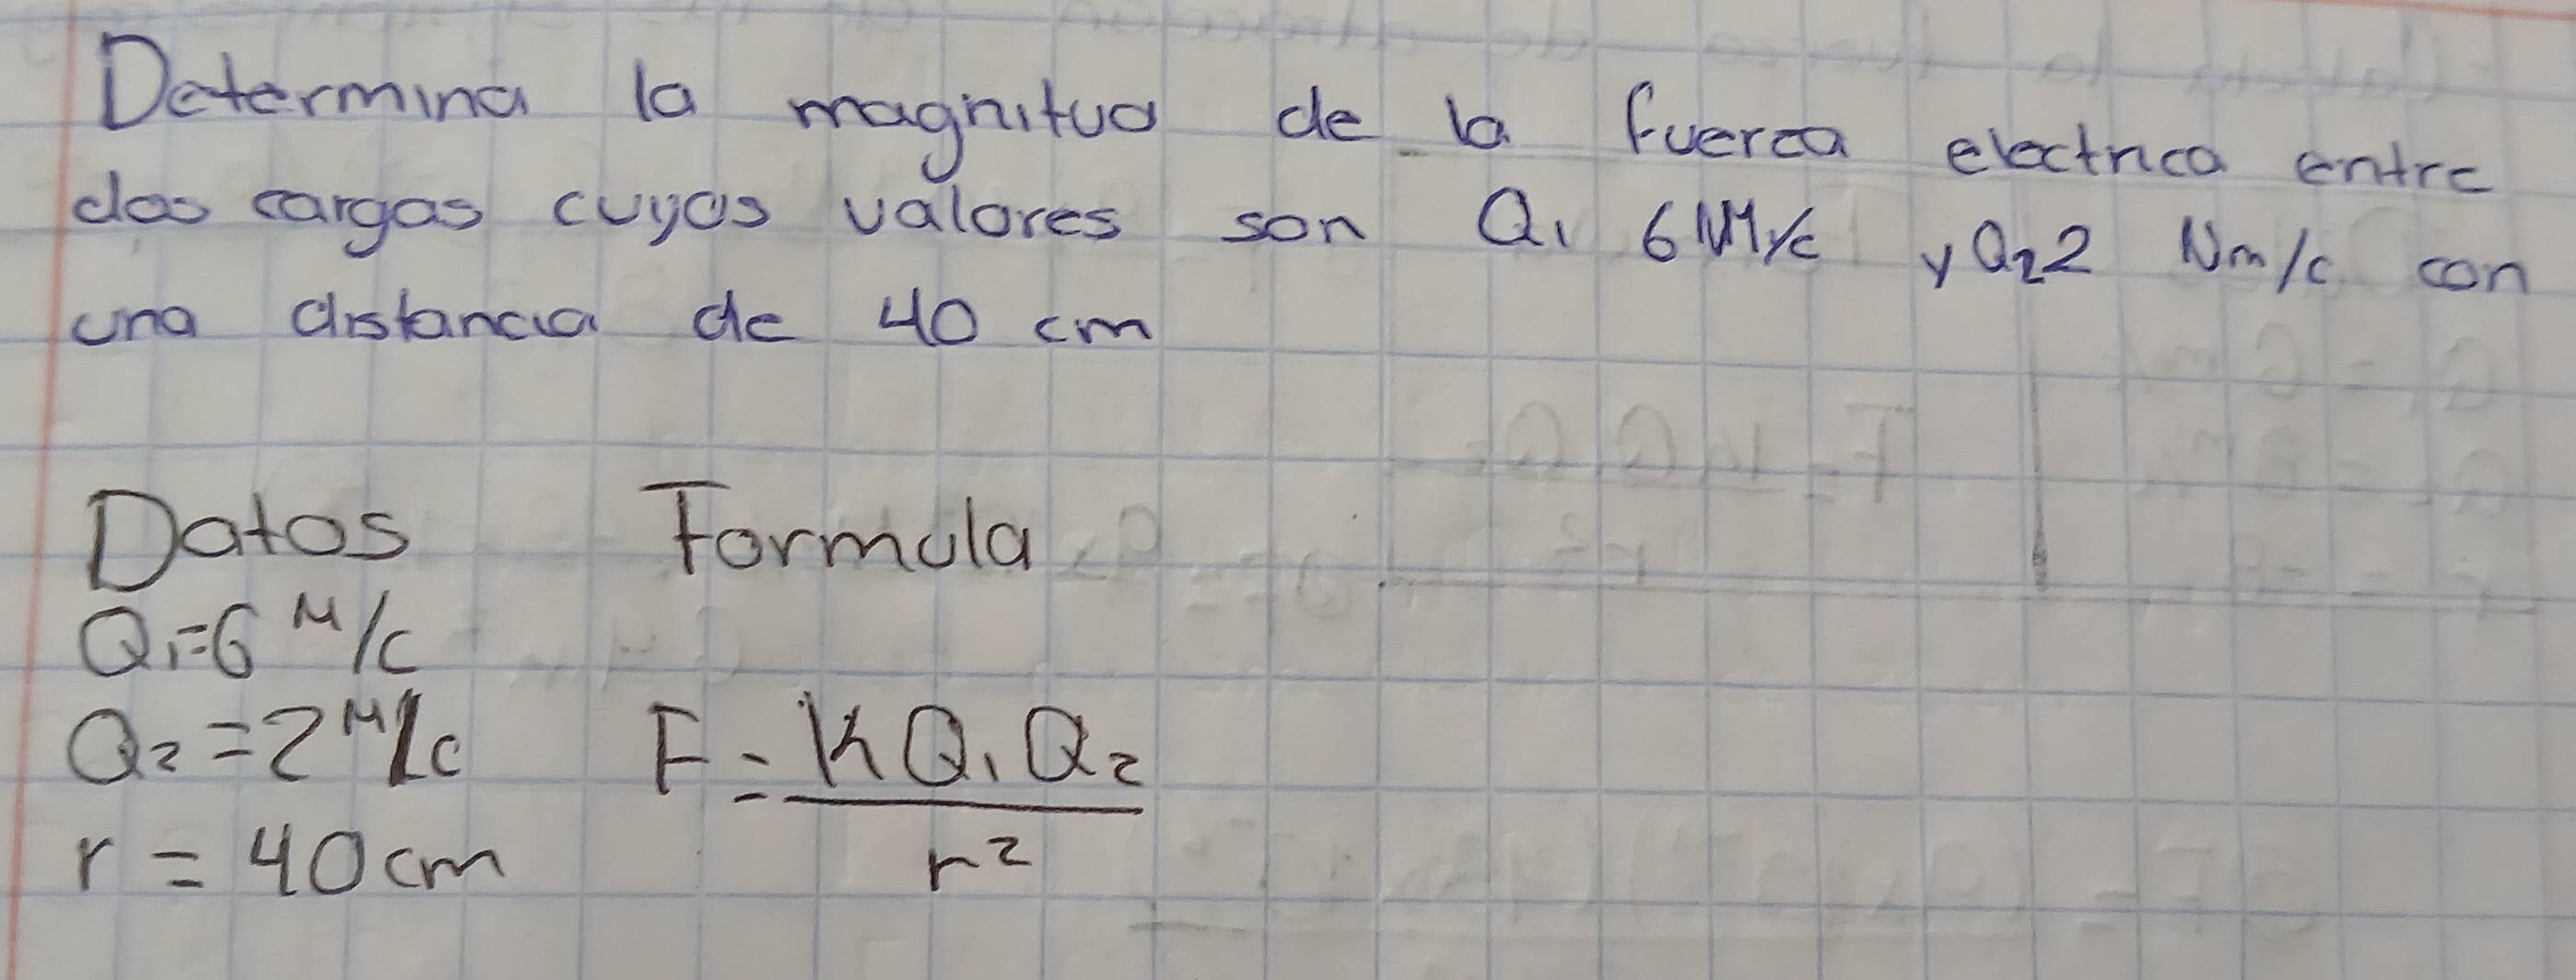 Determina la magnitud de la fuerza electrica entre
dos cargas cuyos valores son Q₁ 6 NM/c y Q₂ 2 Nm/c con
una distancia de 40 cm
Datos Formula
Q₁=6 M/c
Q₂=2 M/c F=KQ₁Q₂/r²
r = 40cm